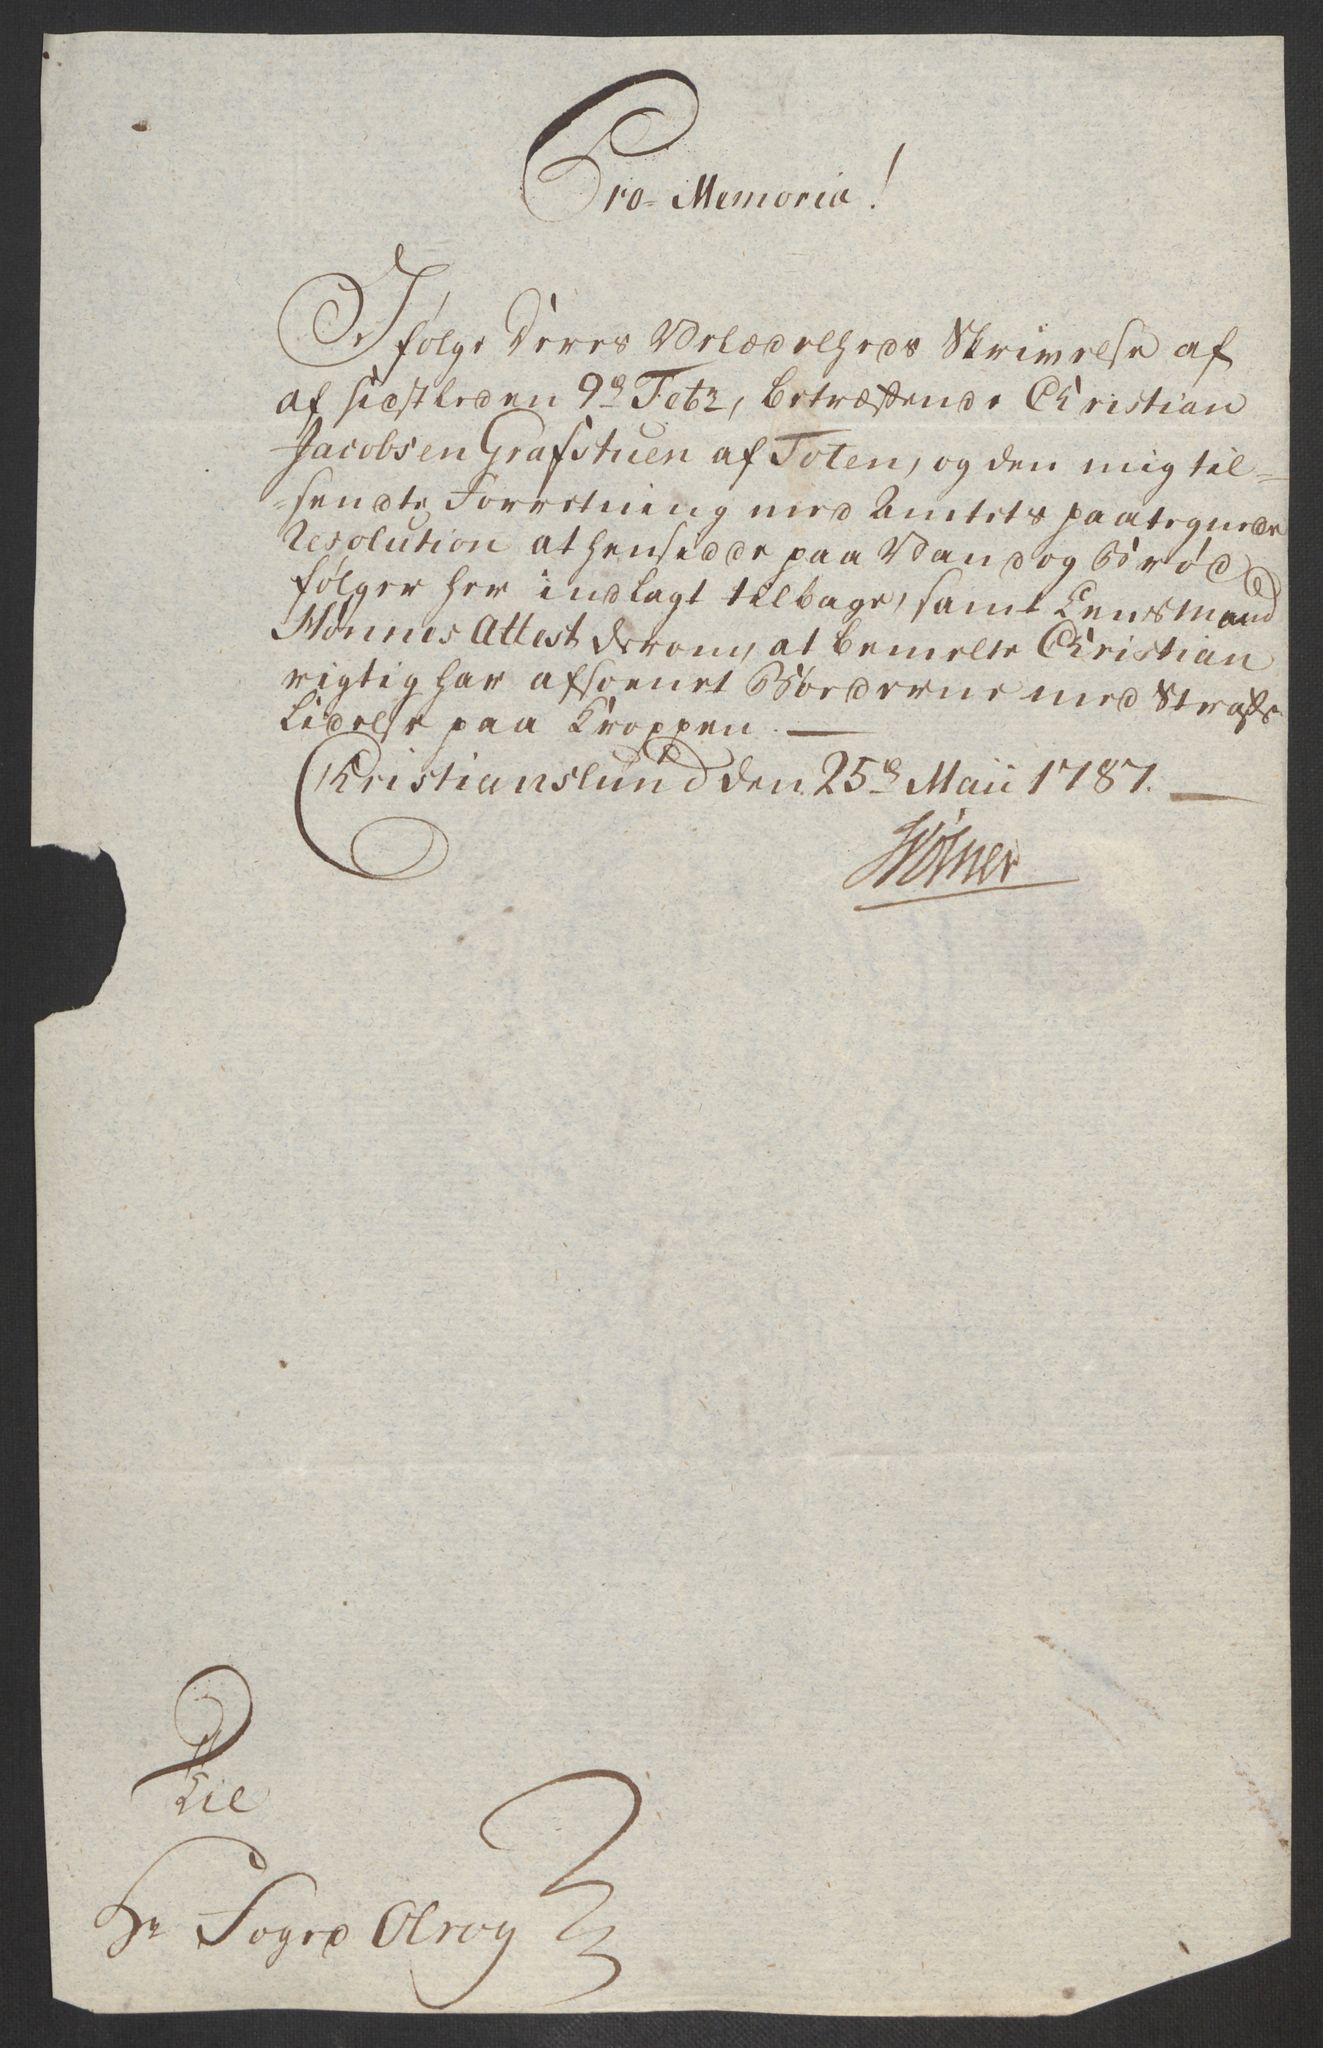 Pro-Memoria!
Ifølge Deres Velædelheds Skrivelse af
af sidstleden 9de Febr, betræffende Christian
Jacobsen Grafstuen af Toten, og den mig til-
-sendte Forretning med Amtets paategnede
Resolution at hensidde paa Vand og Brød
følger her indlagt tilbage, samt Lensmand
Hønnes Attest derom, at bemelte Christian
rigtig har afsoenet Bøederne med Straffs
Lidelse paa Kroppen. —
Christianslund den 25de Maii 1787. —
Wølner
Til
Hr Foged Olrog